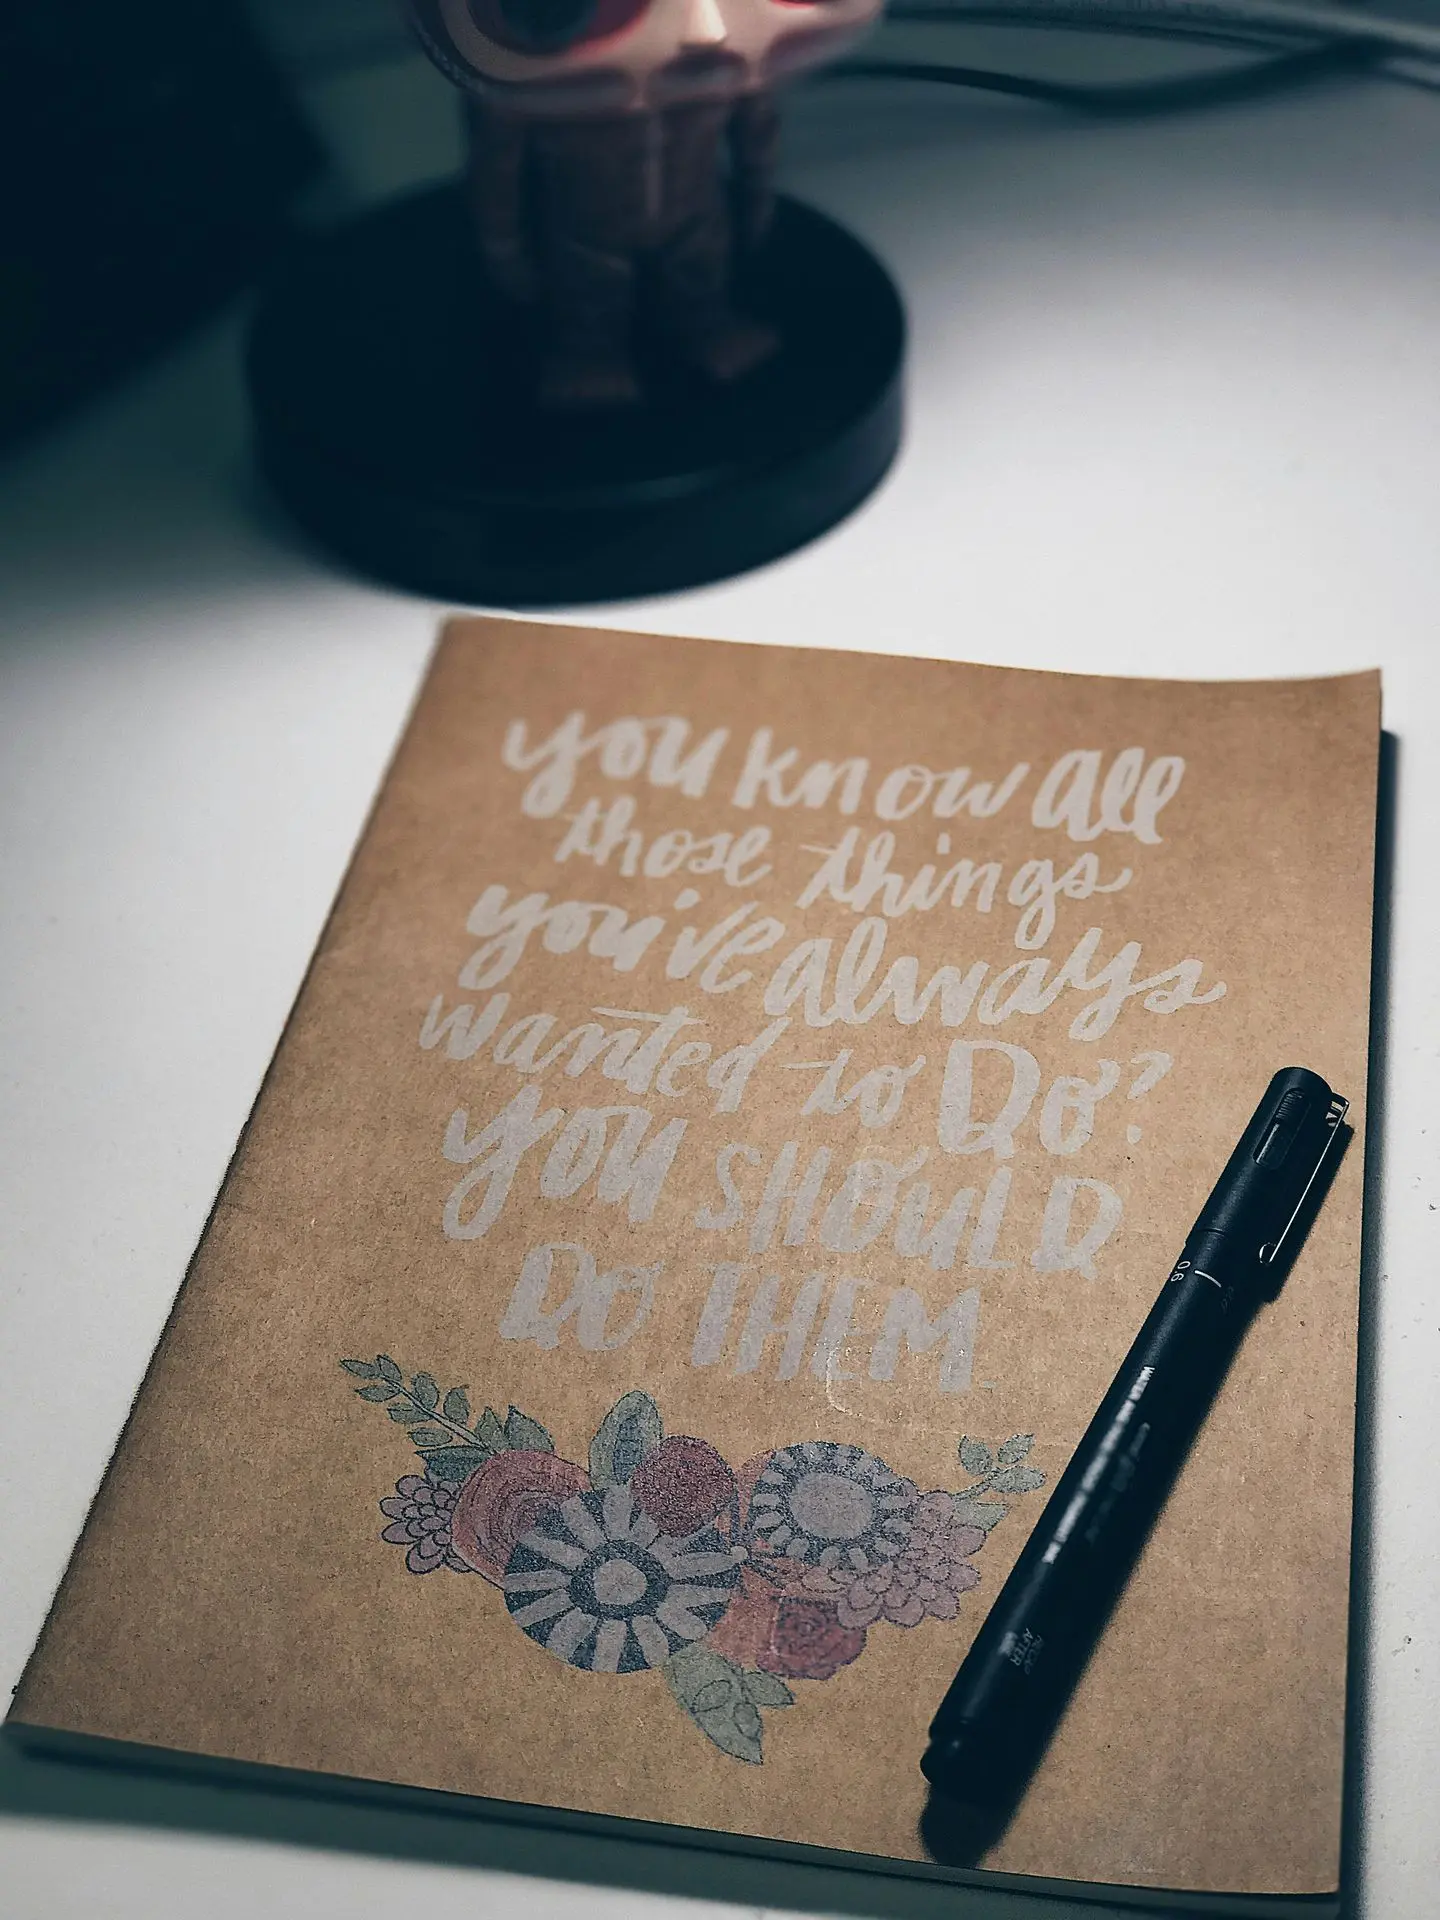 you know all
those things
you've always
wanted to Do?
you SHOULD
DO THEM.
0.6